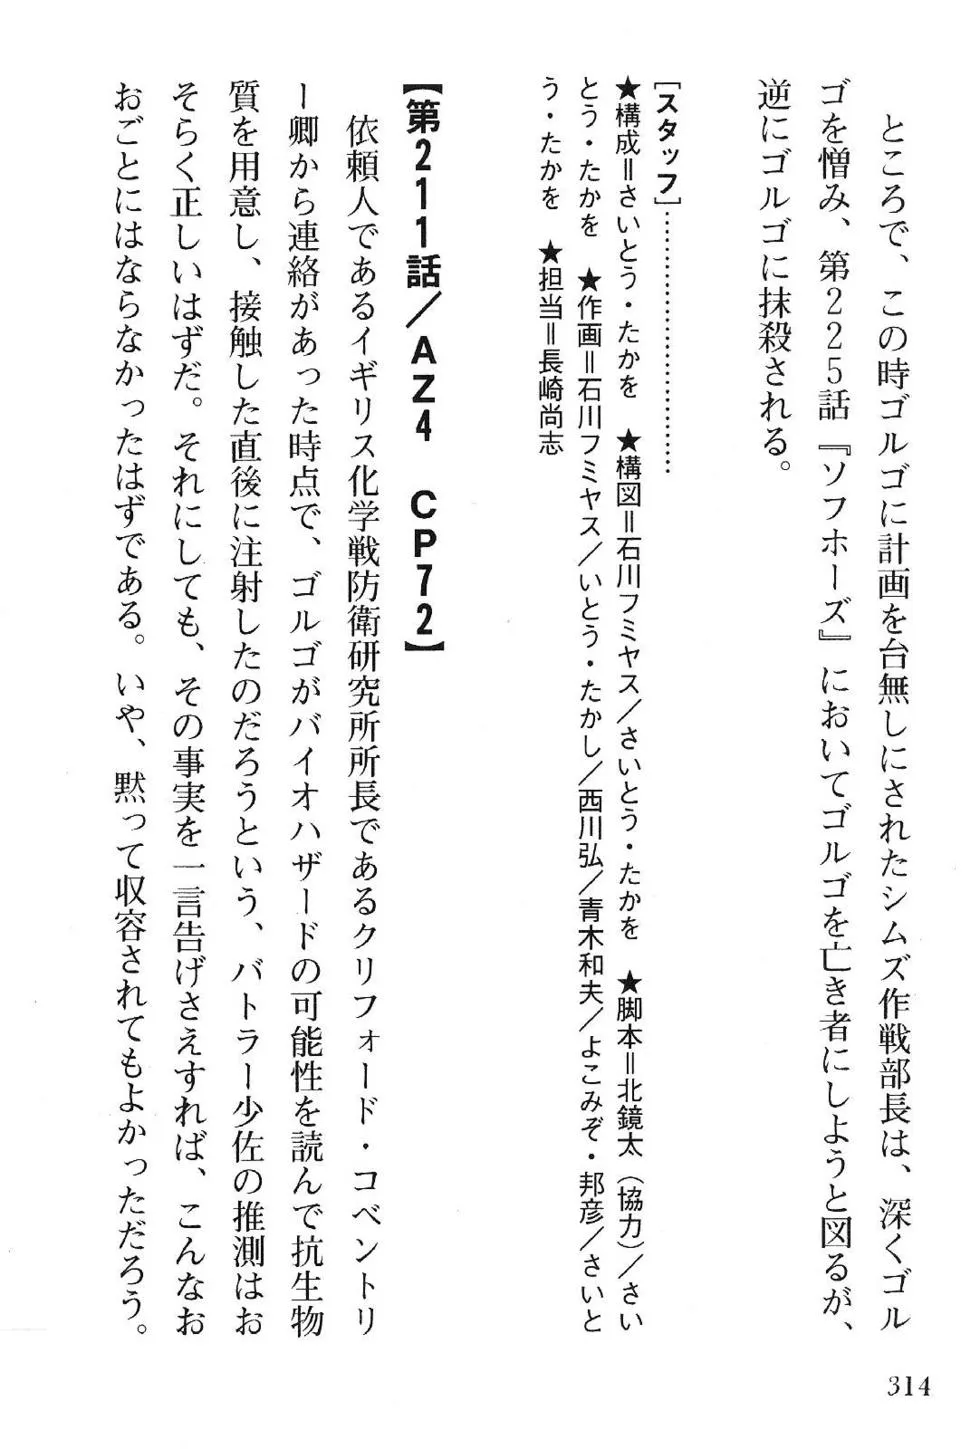 ところで、この時ゴルゴに計画を台無しにされたシムズ作戦部長は、深くゴル
ゴを憎み、第225話『ソフホーズ』においてゴルゴを亡き者にしようと図るが、
逆にゴルゴに抹殺される。
［スタッフ］……………………………
★構成＝さいとう・たかを　★構図＝石川フミヤス／さいとう・たかを　★脚本＝北鏡太（協力）／さい
とう・たかを　★作画＝石川フミヤス／いとう・たかし／西川弘／青木和夫／よこみぞ・邦彦／さいと
う・たかを　★担当＝長崎尚志
【第211話／AZ4　CP72】
依頼人であるイギリス化学戦防衛研究所所長であるクリフォード・コベントリ
ー卿から連絡があった時点で、ゴルゴがバイオハザードの可能性を読んで抗生物
質を用意し、接触した直後に注射したのだろうという、バトラー少佐の推測はお
そらく正しいはずだ。それにしても、その事実を一言告げさえすれば、こんなお
おごとにはならなかったはずである。いや、黙って収容されてもよかっただろう。
314